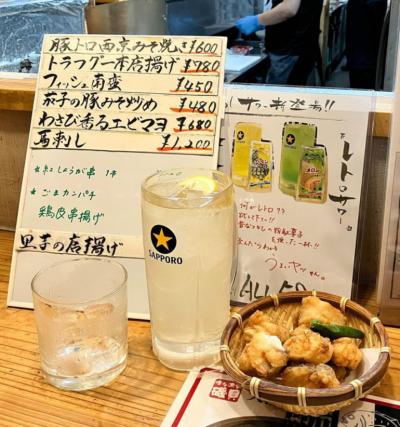 豚トロ西京みそ焼き ¥600
トラフグ一本唐揚げ ¥780
フィッシュ南蛮 ¥450
茄子の豚みそ炒め ¥480
わさび香るエビマヨ ¥680
馬刺し ¥1,200
★紅しょうが串
★ごまカンパチ
鶏皮串揚げ
里芋の唐揚げ
サワー新登場!!
レトロサワー
メロン
何がレトロ??
を使った一杯!!
ALL
SAPPORO